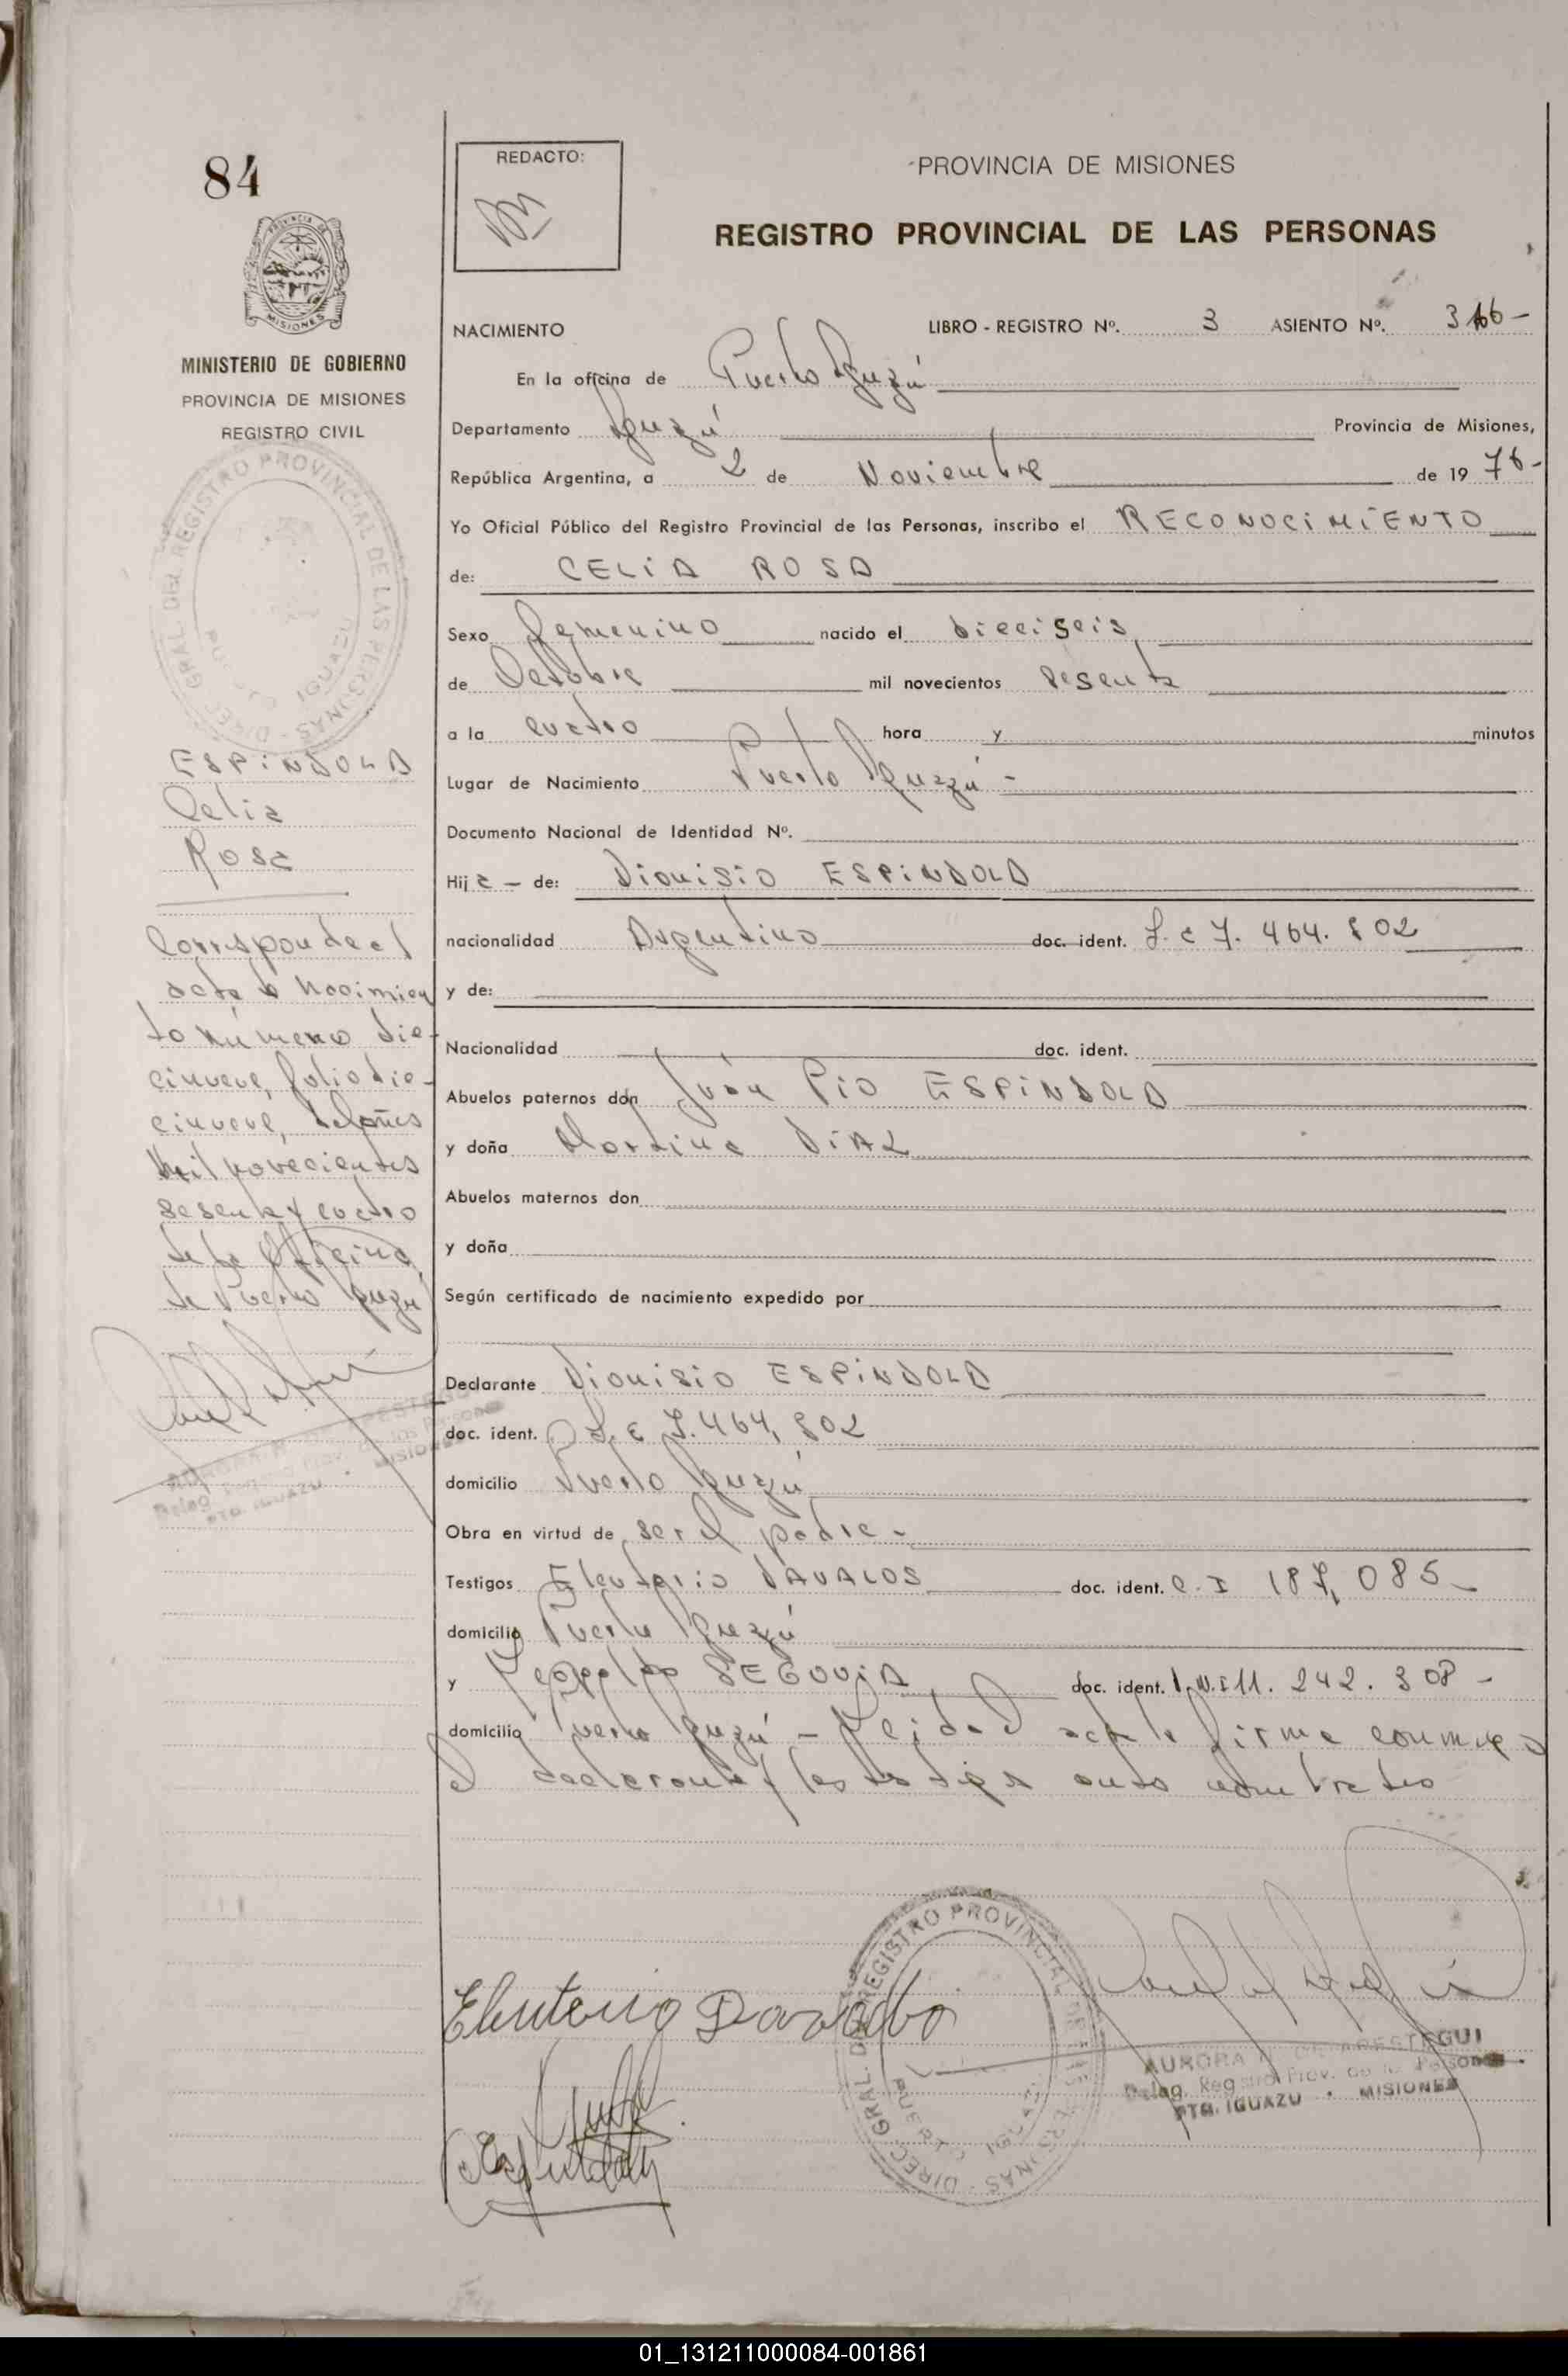 84
REDACTO:
PROVINCIA DE MISIONES
REGISTRO PROVINCIAL DE LAS PERSONAS
MINISTERIO DE GOBIERNO
PROVINCIA DE MISIONES
REGISTRO CIVIL
NACIMIENTO LIBRO - REGISTRO Nº. 3 ASIENTO Nº.
En la oficina de Puerto Iguazú
Departamento Iguazú Provincia de Misiones,
República Argentina, a 2 de Noviembre de 19 76-
Yo Oficial Público del Registro Provincial de las Personas, inscribo el RECONOCIMIENTO
de: CELIA ROSA
Sexo Femenino nacido el Dieciseis
de Octubre mil novecientos sesenta
a la cuatro hora y minutos
Lugar de Nacimiento Puerto Iguazú -
Documento Nacional de Identidad Nº.
Hija - de: Dionisio ESPINDOLA
nacionalidad Argentino doc. ident. L. E 7. 464. 802
y de:
Nacionalidad doc. ident.
Abuelos paternos don Juan Pio ESPINDOLA
y doña Martina DIAZ
Abuelos maternos don
y doña
Según certificado de nacimiento expedido por
Declarante Dionisio ESPINDOLA
doc. ident. L. E 7. 464, 802
domicilio Puerto Iguazú
Obra en virtud de ser el padre -
Testigos Eleuterio DAVALOS doc. ident. C. I 187, 085 -
domicilio Puerto Iguazú
y Leopoldo SEGOVIA doc. ident. D.N.I 11. 242. 308 -
domicilio Puerto Iguazú - Leida el acta la firma conmigo
el declarante y los testigos antes nombrados
ESPINDOLA
Celia
Rosa
Corresponde al
acta de Nacimien
to número die-
cinueve, folio die-
cinueve, del año
mil novecientos
sesenta y cuatro
de la Oficina
de Puerto Iguazú
DIREC. GRAL. DEL REGISTRO PROVINCIAL DE LAS PERSONAS
PUERTO IGUAZU
Eleuterio Davalos
AURORA DE ARESTEGUI
Deleg. Registro Prov. de las Personas
PTO. IGUAZU - MISIONES
01_131211000084-001861